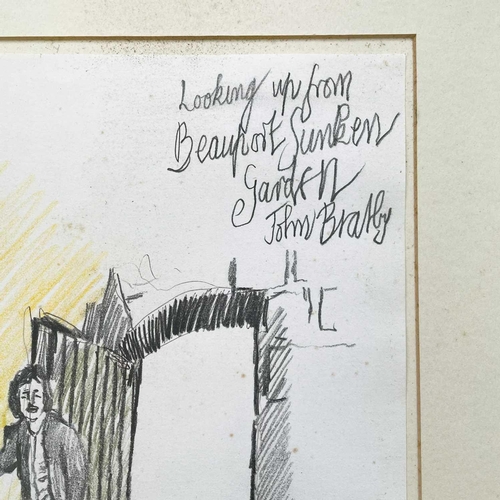 Looking up from
Beauport Sunken
Garden
John Bratby